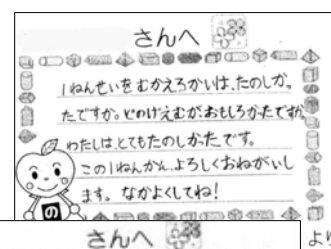 さんへ
1ねんせいをむかえるかいは、たのしかっ
たですか。どのげえむがおもしろかったですか。
わたしは、とてもたのしかったです。
この1ねんかん、よろしくおねがいし
ます。なかよくしてね!
の
さんへ
より